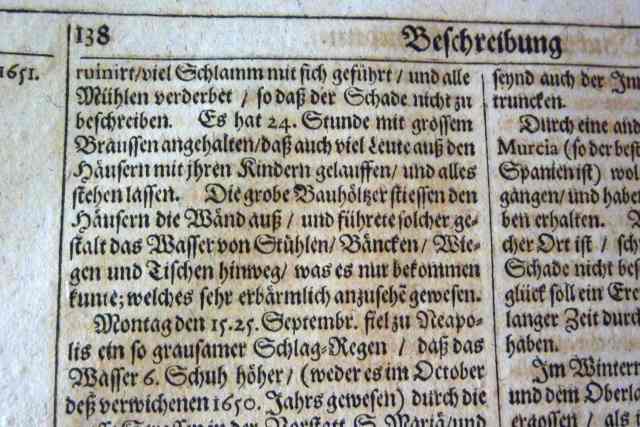 138
Beschreibung
1651.
ruinirt/viel Schlamm mit sich geführt / und alle
Mühlen verderbet / so daß der Schade nicht zu
beschreiben. Es hat 24. Stunde mit grossem
Braussen angehalten/daß auch viel Leute auß den
Häusern mit jhren Kindern gelauffen/ und alles
stehen lassen. Die grobe Bauhöltzer stiessen den
Häusern die Wänd auß / und führete solcher ge-
stalt das Wasser von Stühlen/ Bäncken/ Wie-
gen und Tischen hinweg/ was es nur bekommen
kunte; welches sehr erbärmlich anzusehē gewesen.
Montag den 15.25. Septembr. fiel zu Neapo-
lis ein so grausamer Schlag-Regen / daß das
Wasser 6. Schuh höher/ (weder es im October
deß verwichenen 1650. Jahrs gewesen) durch die
in der Vorstatt S. Mariä/und
seynd auch der Im
truncken.
Durch eine and
Murcia (so der best
Spanien ist) wol
gangen/ und haben
ben erhalten.
cher Ort ist / sch
Schade nicht bes
glück soll ein Ere
langer Zeit durch
haben.
Im Wintern
und dem Oberla
ergossen / als